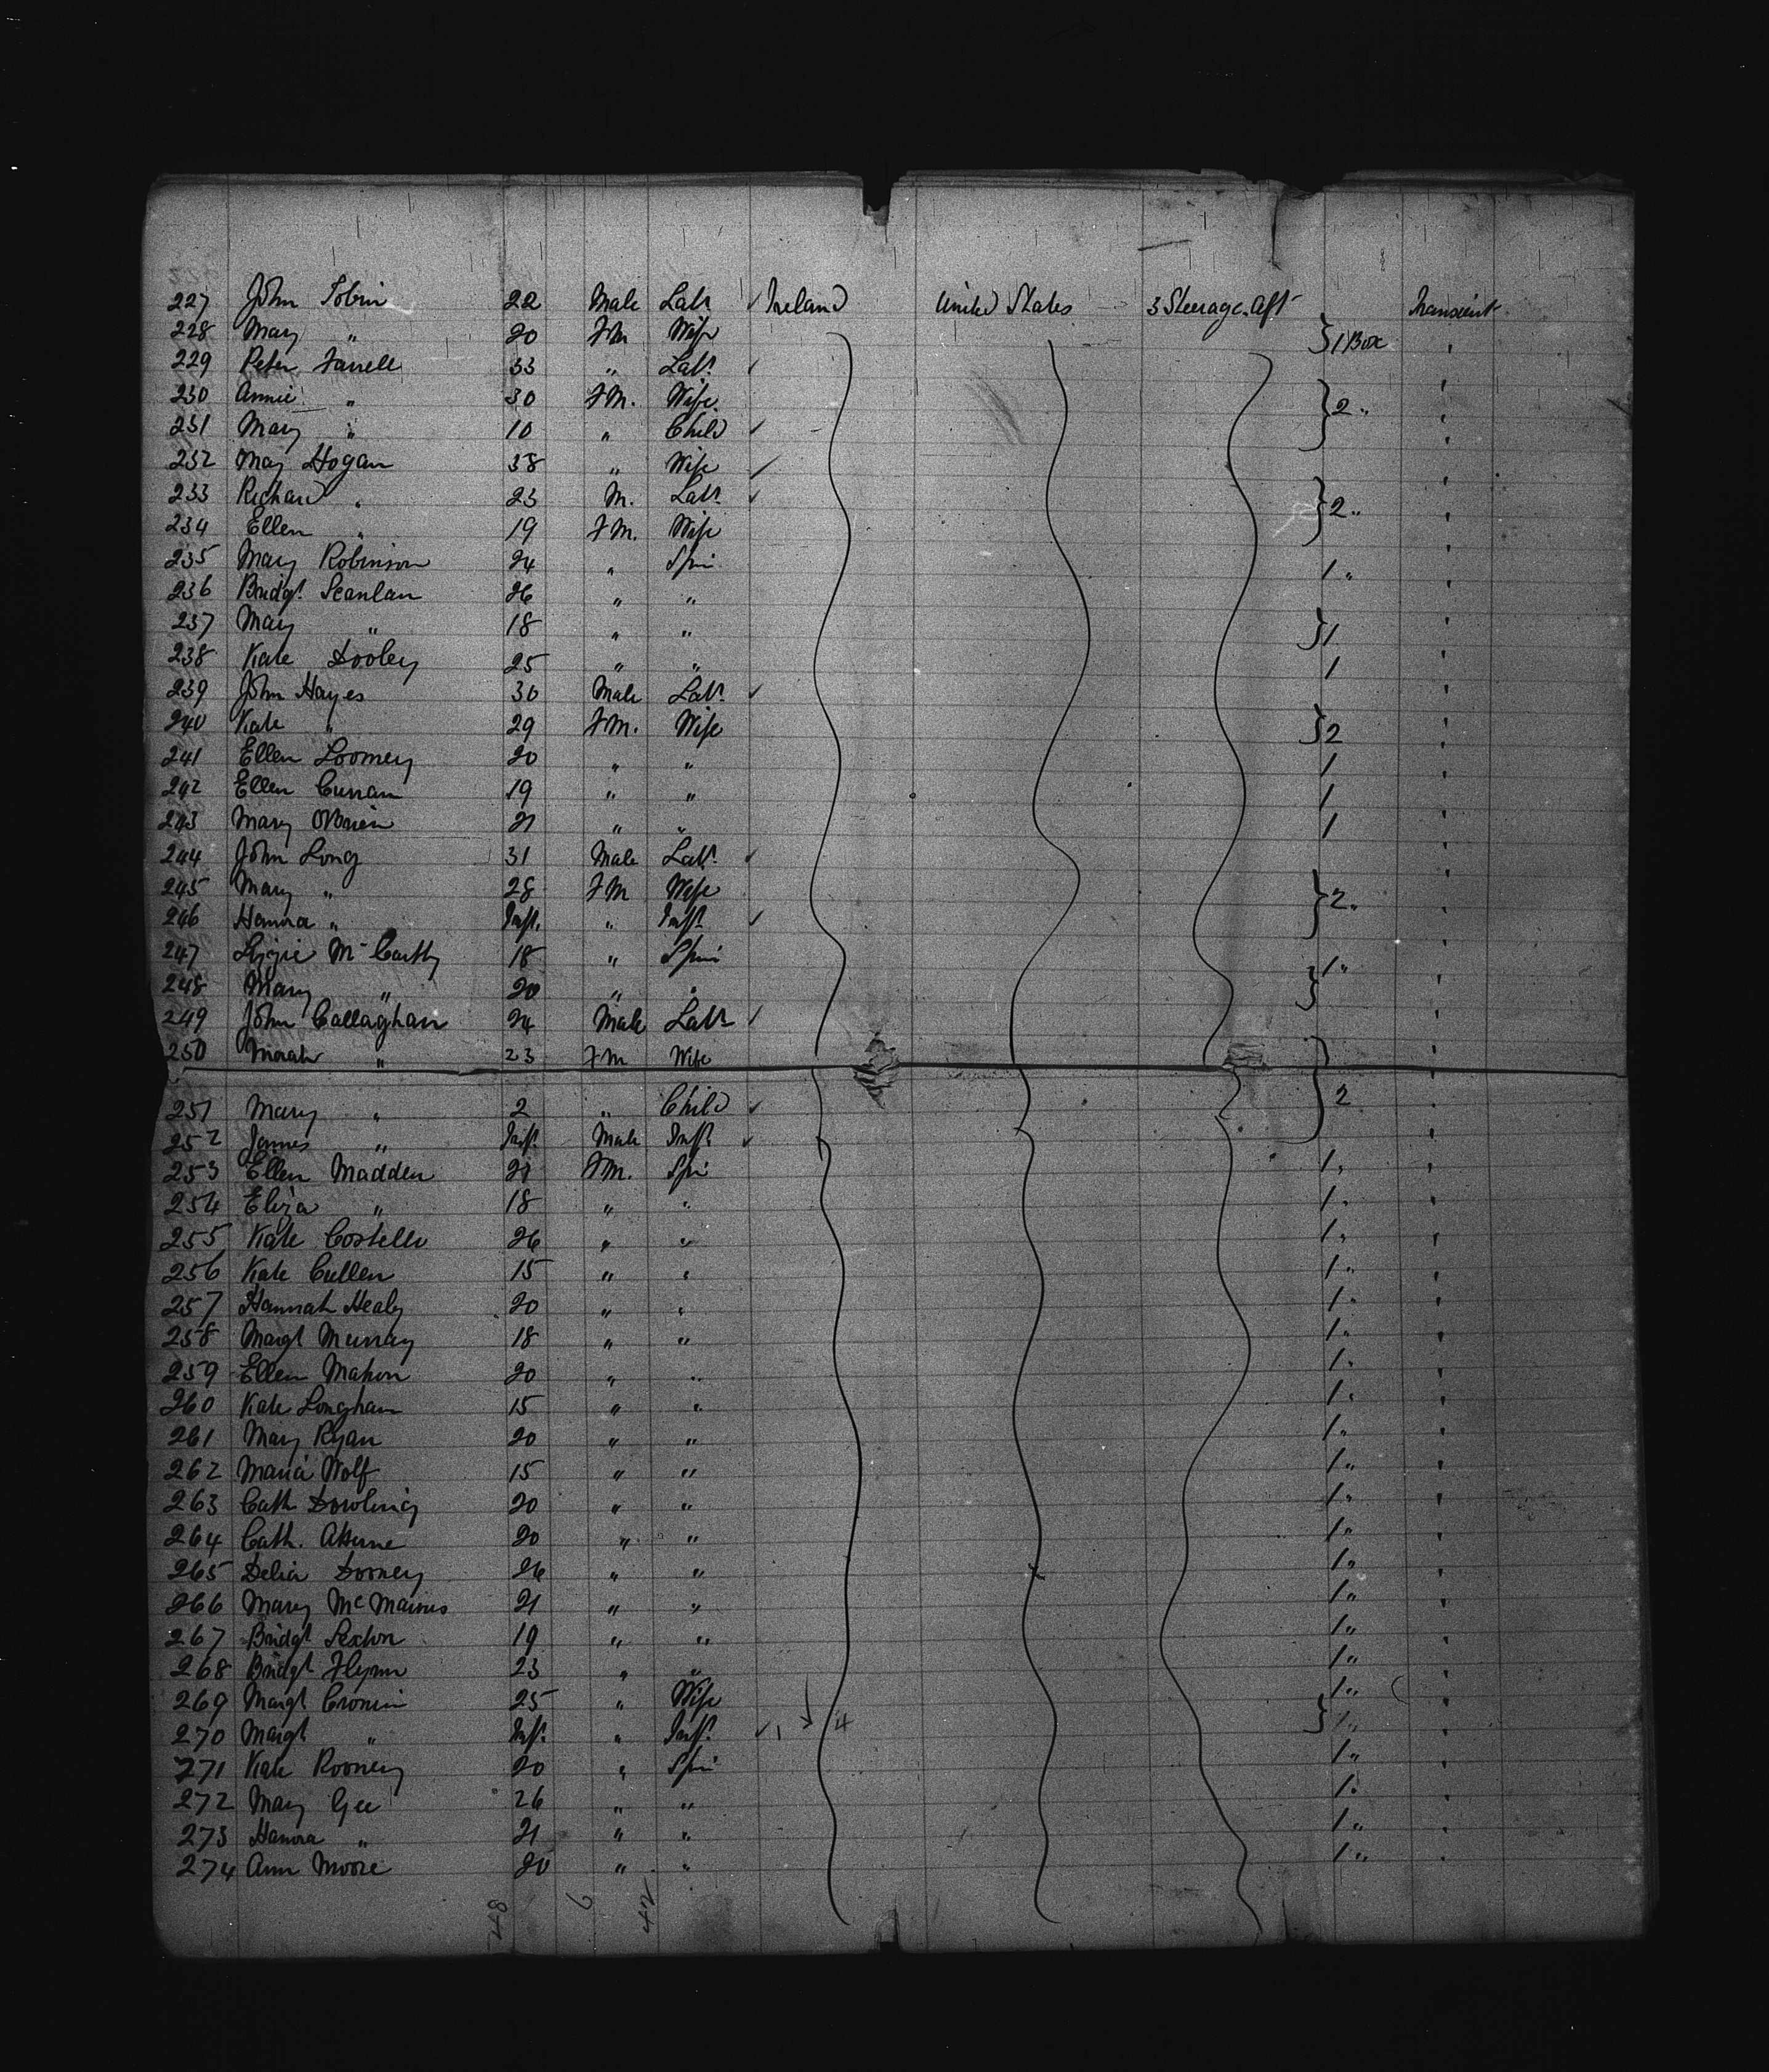 227 John Tobin 22 Male Labr ✓ Ireland United States 3 Steerage Aft Transient
228 Mary " 20 FM Wife } 1 Box "
229 Peter Farrell 33 " Labr ✓ "
230 Annie " 30 FM. Wife } 2 " "
231 Mary " 10 " Child ✓ "
232 May Hogan 38 " Wife ✓ "
233 Richard " 23 M. Labr ✓ } 2 " "
234 Ellen " 19 FM. Wife "
235 Mary Robinson 24 " Spin 1 " "
236 Bridgt Scanlan 26 " " "
237 Mary " 18 " " } 1 "
238 Kate Dooley 25 " " 1 "
239 John Hayes 30 Male Labr ✓ "
240 Kate " 29 FM. Wife } 2 "
241 Ellen Loomey 20 " " 1 "
242 Ellen Curran 19 " " 1 "
243 Mary O'Brien 21 " " 1 "
244 John Long 31 Male Labr ✓ "
245 Mary " 28 FM Wife } 2 " "
246 Hanora " Inft. " Inft ✓ "
247 Lizzie McCarthy 18 " Spin 1 " "
248 Mary " 20 " " } "
249 John Callaghan 24 Male Labr ✓ "
250 Norah " 23 FM Wife "
251 Mary " 2 " Child ✓ } 2 "
252 James " Inft Male Inft ✓ "
253 Ellen Madden 21 FM. Spi 1 " "
254 Eliza " 18 " " 1 " "
255 Kate Costello 26 " " 1 " "
256 Kate Cullen 15 " " 1 " "
257 Hannah Healy 20 " " 1 " "
258 Margt Murray 18 " " 1 " "
259 Ellen Mahon 20 " " 1 " "
260 Kate Longhan 15 " " 1 " "
261 Mary Ryan 20 " " 1 " "
262 Maria Wolf 15 " " 1 " "
263 Cath Dowling 20 " " 1 " "
264 Cath. Aherne 20 " " 1 " "
265 Delia Dooney 26 " " 1 " "
266 Mary 21 " " 1 " "
267 Bridgt Sexton 19 " " 1 " "
268 Bridgt Flynn 23 " " 1 " "
269 Margt Cronin 25 " Wife 1 " "
270 Margt " Inft. " Inft. ✓ 4 } 1 " "
271 Kate Rooney 20 " Spin 1 " "
272 Mary Gee 26 " " 1 " "
273 Hanora " 21 " " 1 " "
274 Ann Moore 20 " " 1 " "
48 6 42